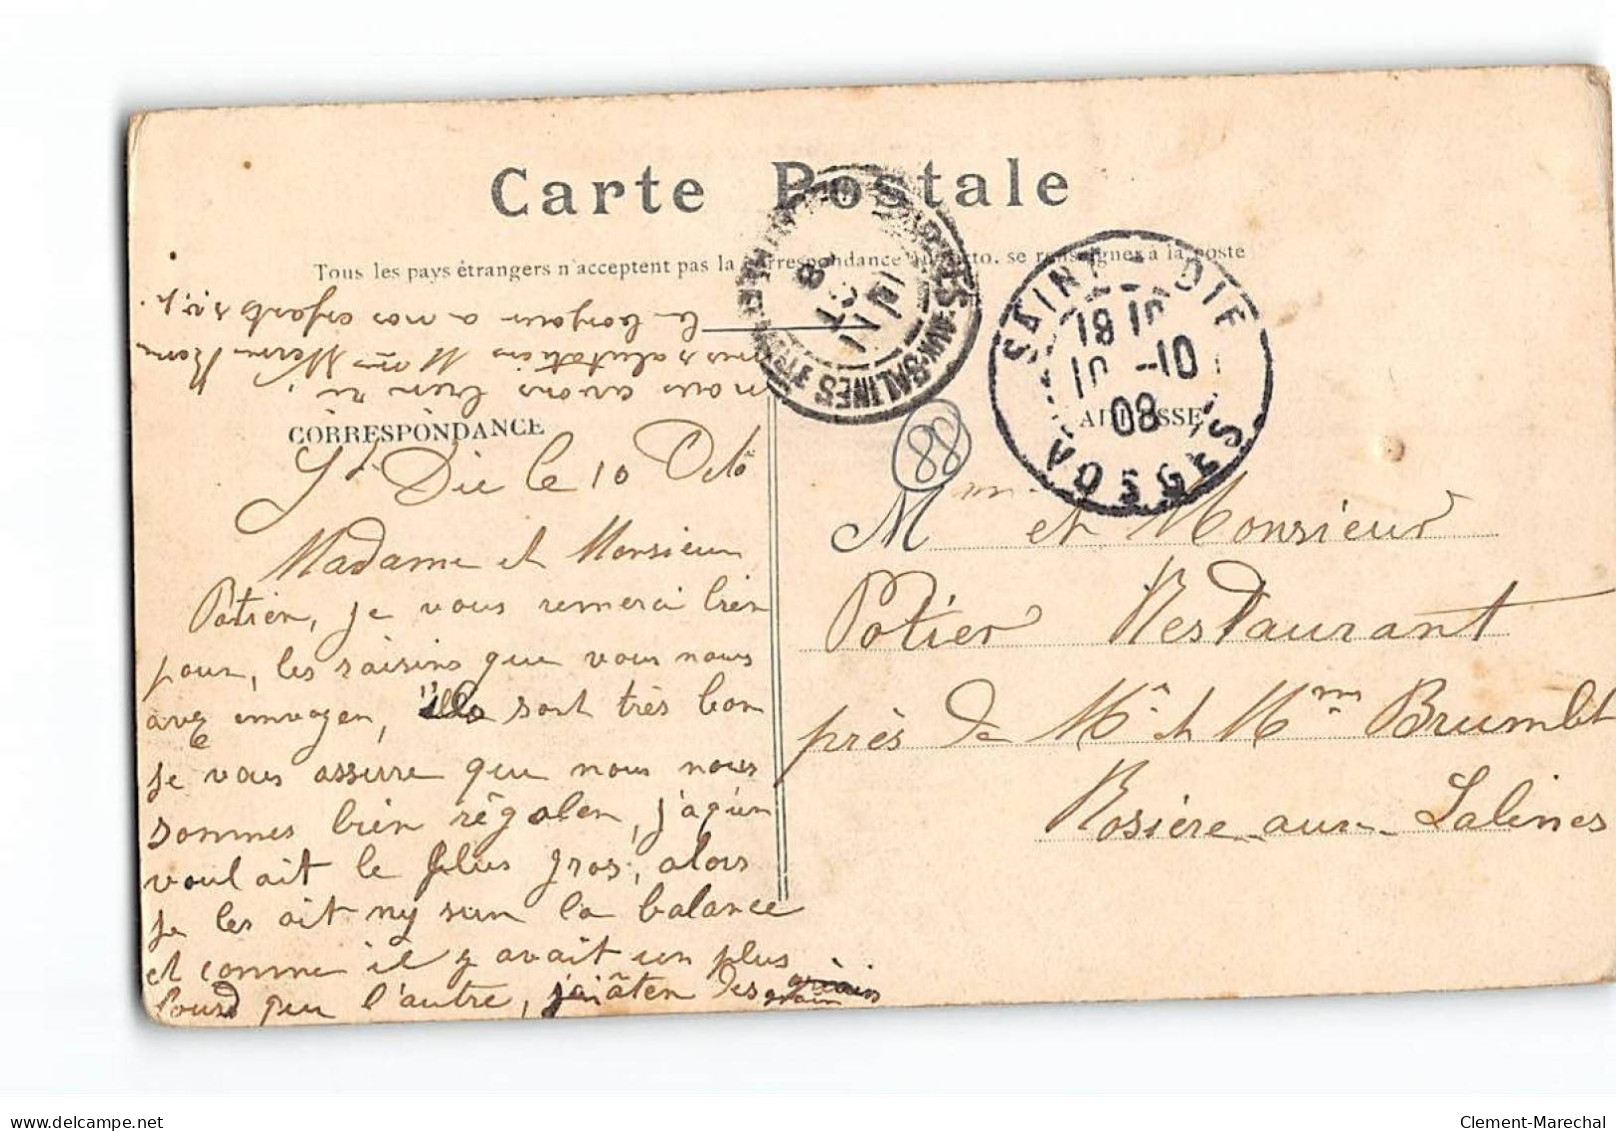 Carte Postale
Tous les pays étrangers n'acceptent pas la correspondance au recto. se renseigner à la poste
CORRESPONDANCE
ADRESSE
SAINT-DIÉ
18 10
10 -10
08
VOSGES
AUX-SALINES
88
St Dié le 10 Octo
Madame et Monsieur
Potier, je vous remerci bien
pour, les raisins que vous nous
avez envoyer, ills sont très bon
je vous assure que nous nous
sommes bien régaler, j'aqu'un
voulait le plus gros, alors
je les ait my sur la balance
et comme il y avait un plus
lourd que l'autre, j'ai âter des grain
nous avons bien ri
mes salutations Mme
le bonjour a nos enfants s.v.p.
Mme et Monsieur
Potier Restaurant
près de Mr et Mme Brumbt
Rosière aux Salines
Clement-Marechal